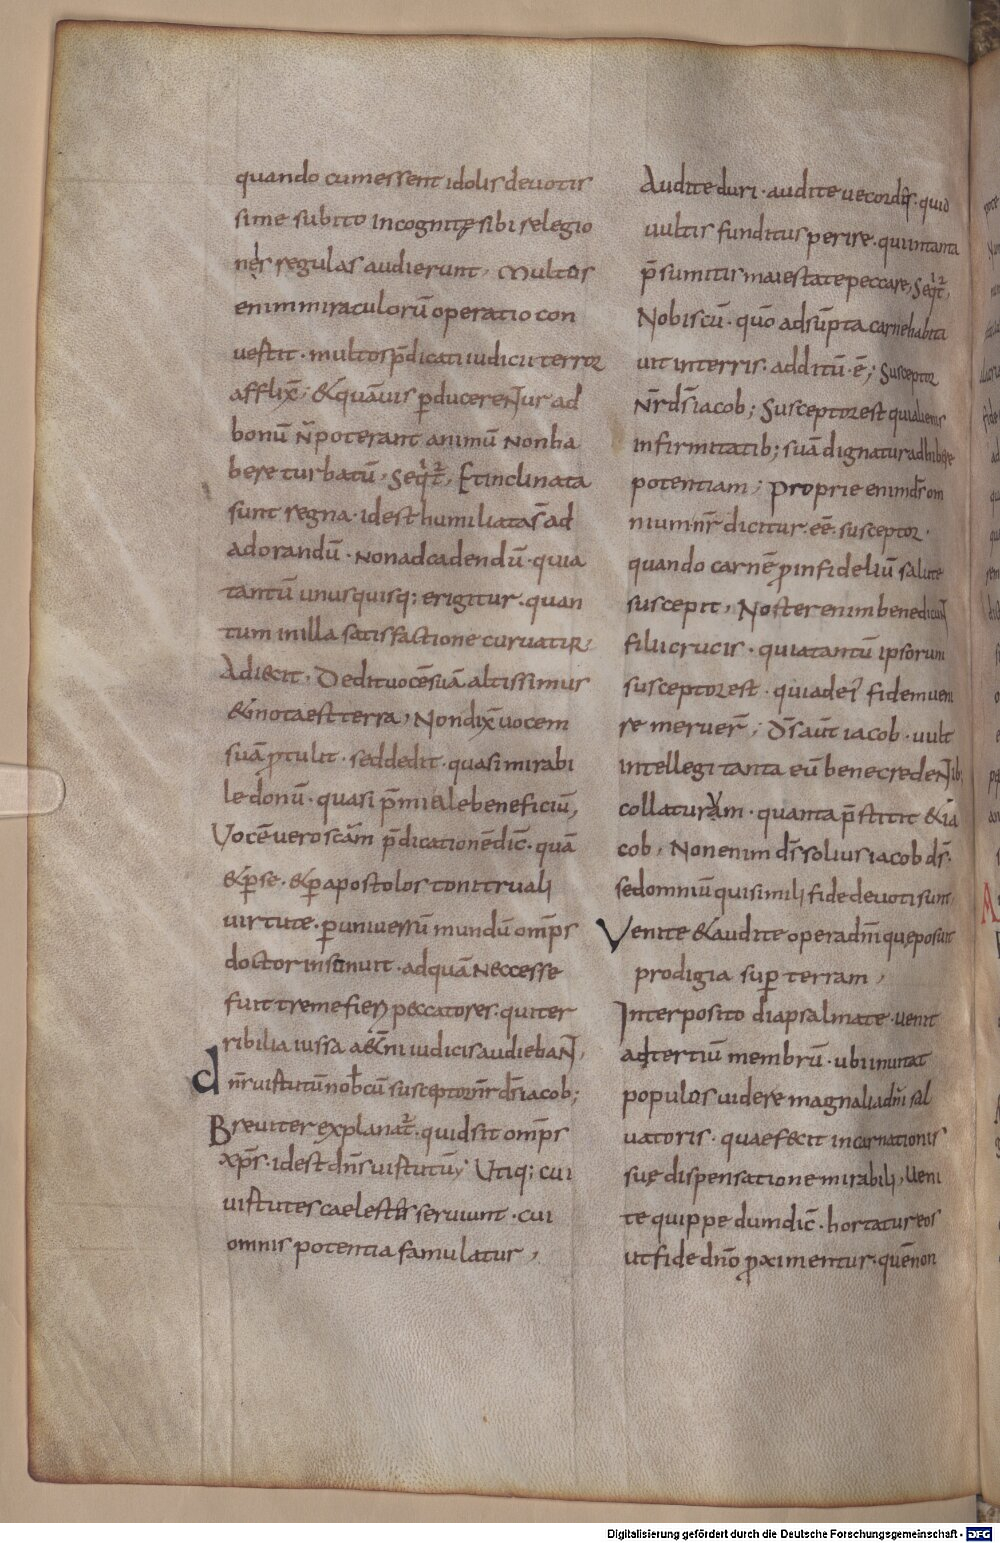 quando cum essent idolis deuotis
sime subito incognitę sibi relegio
nis regulas audierunt, Multos
enim miraculorū operatio con
uertit · multos p̄dicati iudicii terror
afflix̄; & quāuis ꝑducerentur ad
bonū n̄ poterant animū non ha
bere turbatū, Seqͥt̄, Et inclinata
sunt regna · id est humiliata s̄ ad
adorandū · Non ad cadendū · quia
tantū unusquisq; erigitur · quan
tum in illa satisfactione curuatur,
Adiecit, Dedit uocē suā altissimus
& mota est terra, Non dix̄ uocem
suā ꝓtulit · sed dedit · quasi mirabi
le donū · quasi p̄miale beneficiū,
Uocē uero sc̄am p̄dicationē dic̄ · quā
& ꝑ se · & ꝑ apostolos tonitruali
uirtute · ꝑ uniuersū mundū om̄ps
doctor insonuit · ad quā neccesse
fuit tremefieri peccatores · qui ter
ribilia iussa aet̄ni iudicis audiebant,
dn̄r uirtutū nob̄cū susceptor nr̄ d̄s iacob;
Breuiter explanat̄ · quid sit om̄ps
xp̄s · id est dn̄s uirtutū, Utiq; cui
uirtutes caelestes seruiunt · cui
omnis potentia famulatur,
Audite duri · audite uecordes · quid
uultis funditus perire · qui in tanta
p̄sumitis maiestate peccare, Seqͥt̄,
Nobiscū · quō adsūpta carne habita
uit in terris · additū · ē; Susceptor
nr̄ d̄s iacob; Susceptor est qui alienis
infirmitatib; suā dignatur adhibere
potentiam; Proprie enim d̄s om
nium nr̄ dicitur · eē · susceptor ·
quando carnē ꝓ infideliū salute
suscepit, Noster enim benedicunt
filii crucis · quia tantū ipsorum
susceptor est · qui ad eiꝰ fidem ueni
re meruer̄; D̄s aūt iacob · uult
intellegi tanta eū bene credentib;
collaturum · quanta p̄stitit & ia
cob, Non enim d̄s solius iacob d̄s ·
sed omniū qui simili fide deuoti sunt,
Uenite & audite opera dn̄i quę posuit
prodigia suꝑ terram,
Interposito diapsalmate · uenit
ad tertiū membrū · ubi inuitat
populos uidere magnalia dn̄i sal
uatoris · quae fecit incarnationis
suę dispensatione mirabili, Ueni
te quippe dum dic̄ · hortatur eos
ut fide dn̄o ꝓximentur · quē non
Digitalisierung gefördert durch die Deutsche Forschungsgemeinschaft - DFG